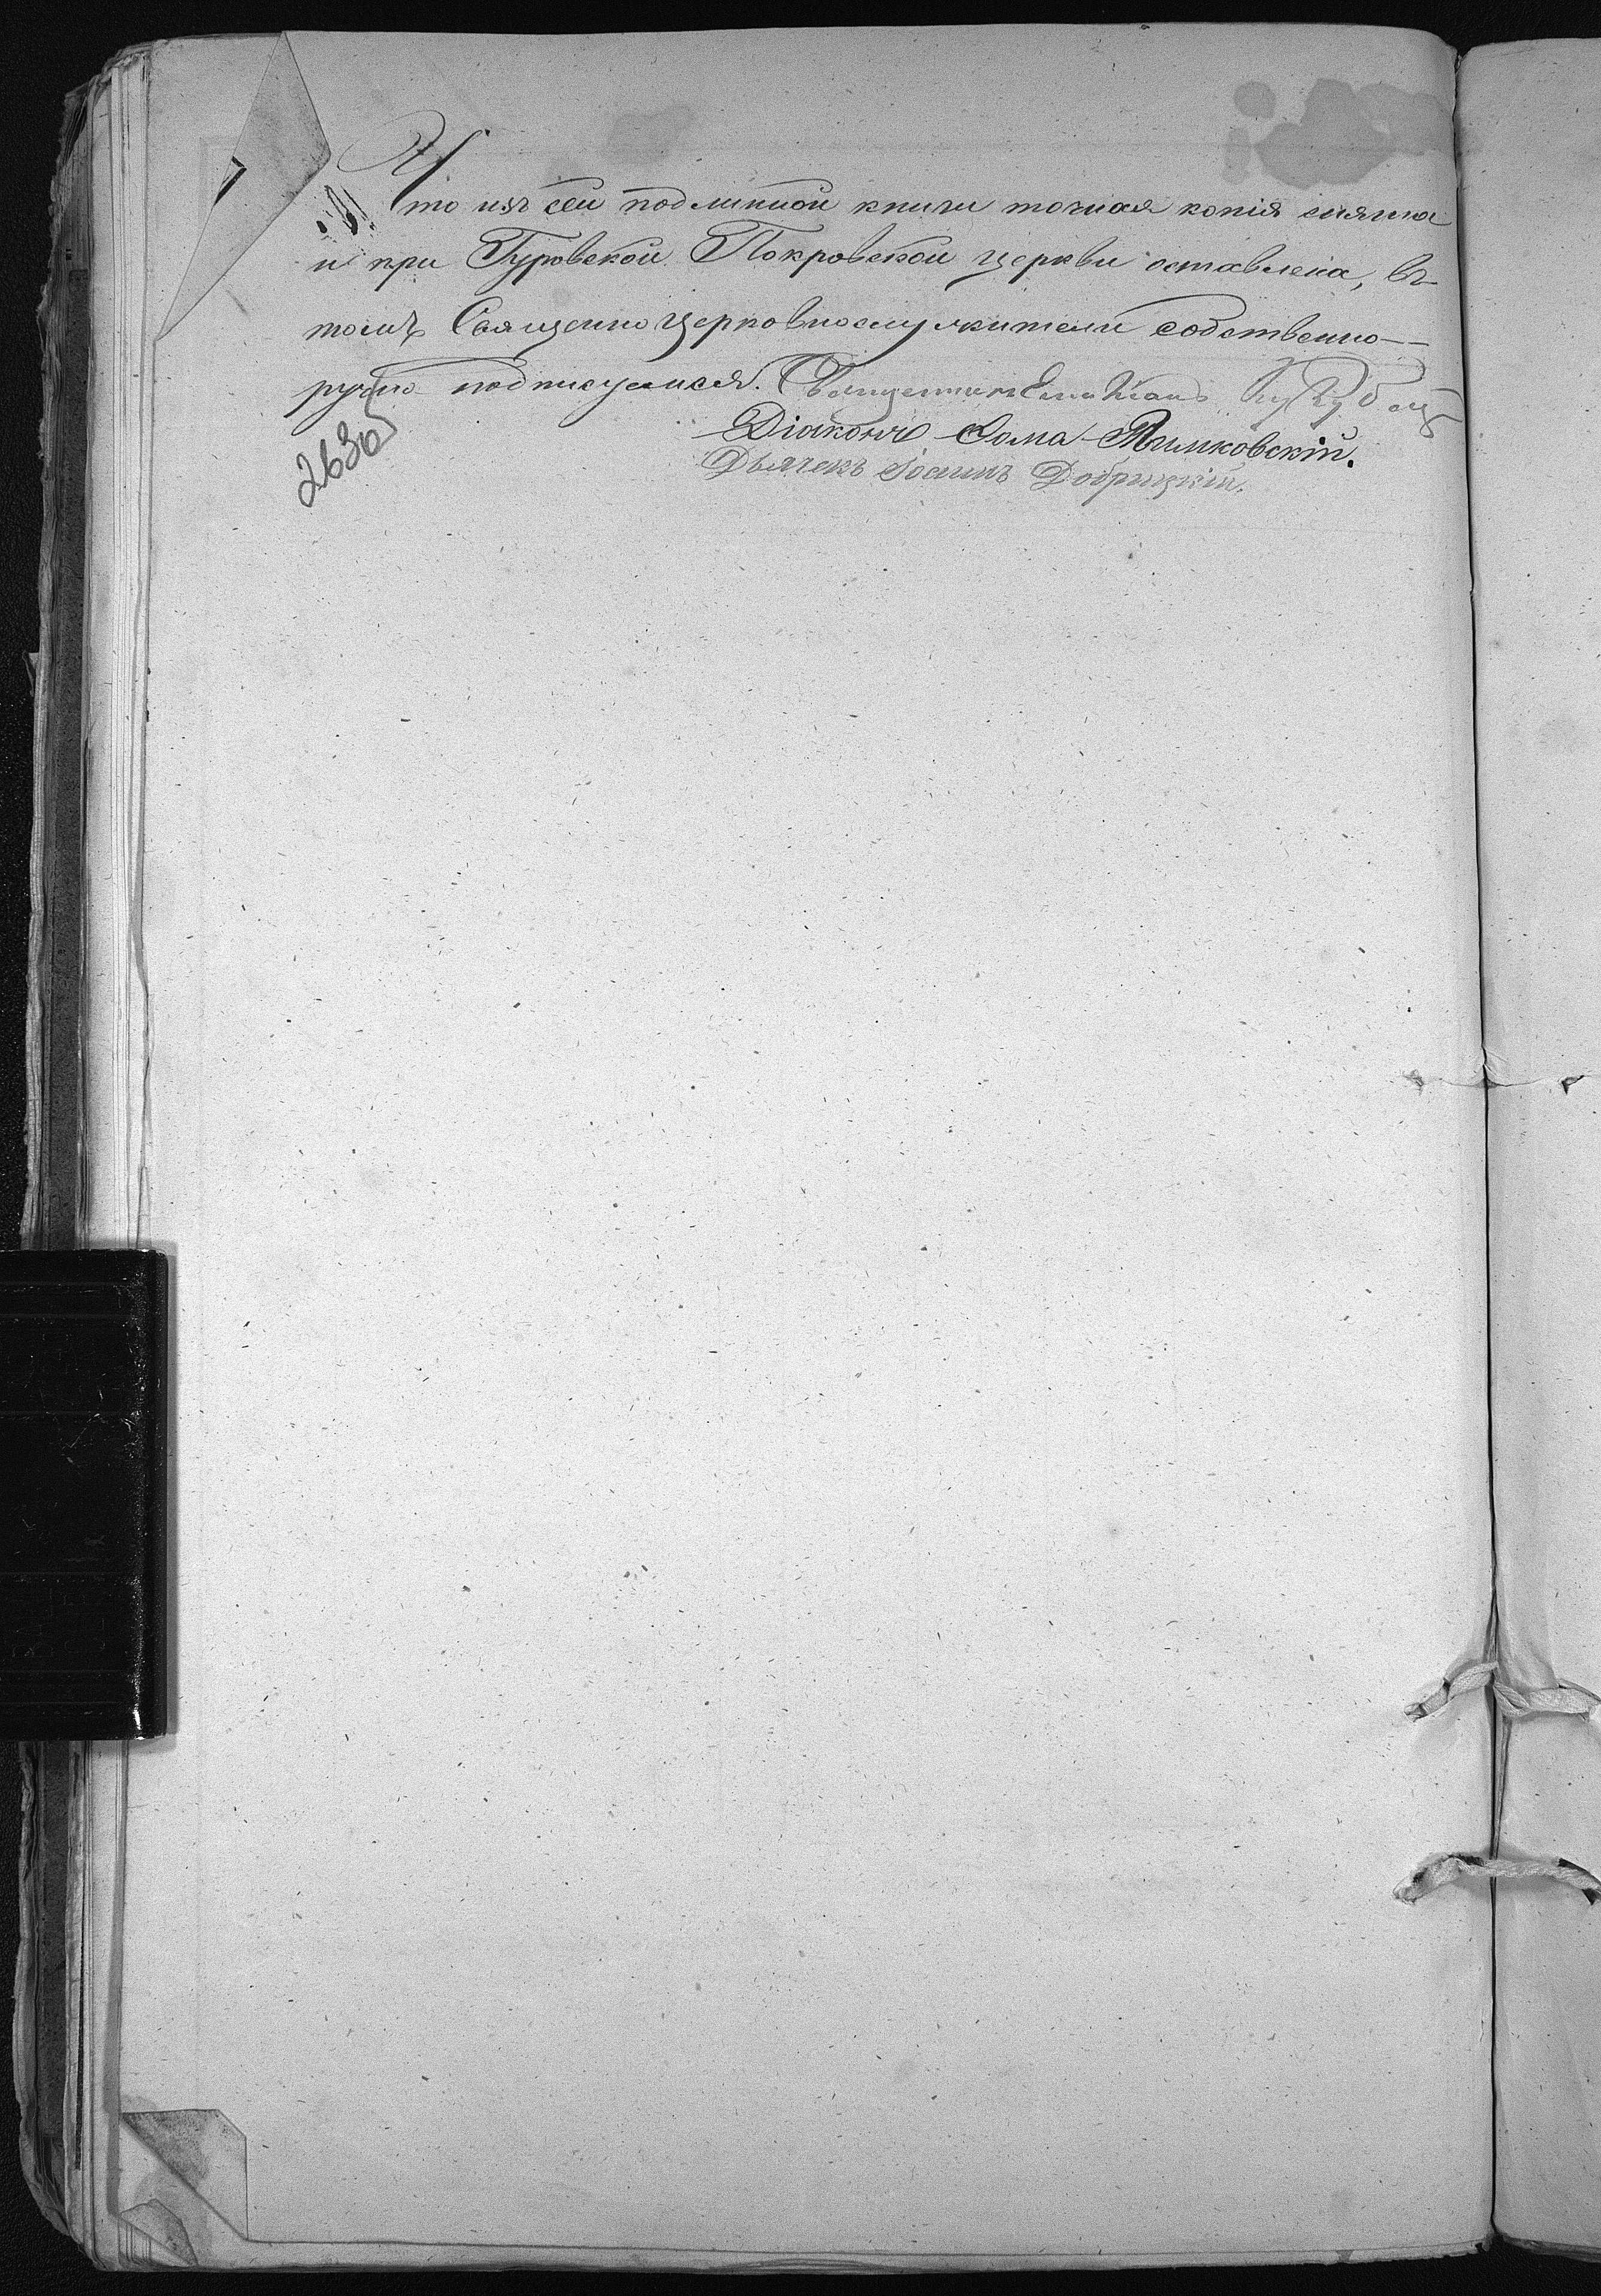 Что изъ сей подлинной книги точная копія снята
и при Гуровской Покровской церкви оставлена, въ
томъ Священно церковнослужители собственно-
ручно подписуемся. Священникъ
Діаконъ Ѳома Тимковскій.
Дьячекъ Іоаннъ Добрицкій.
263об